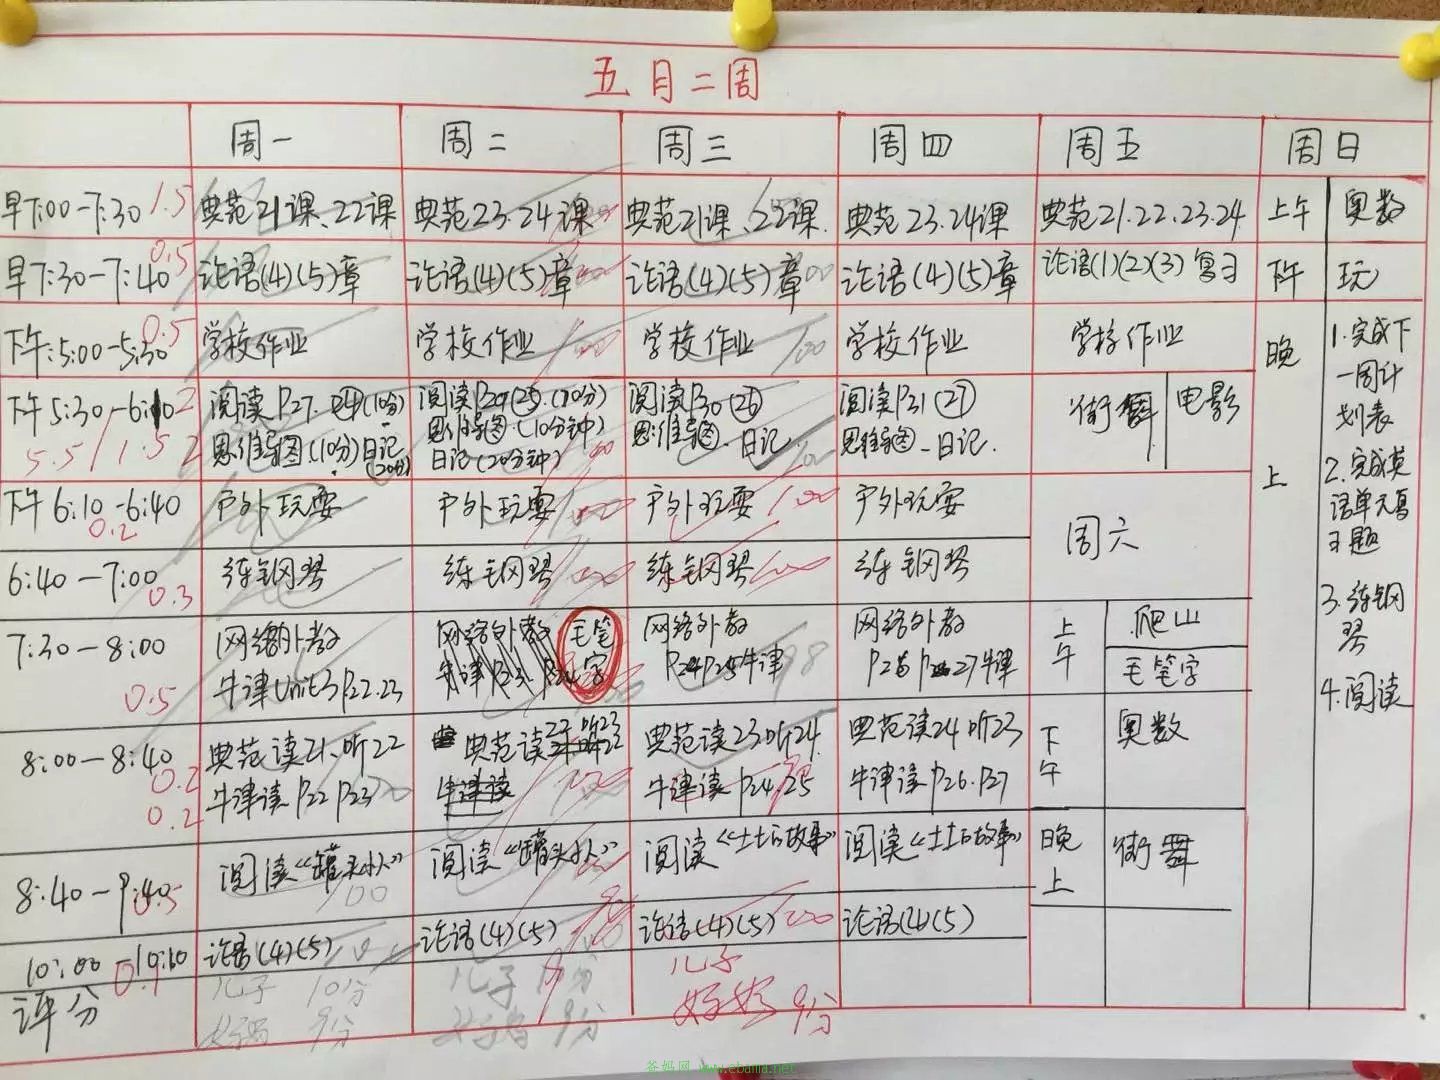 五月二周
周一 周二 周三 周四 周五 周日
早7:00-7:30 1.5 典范21课、22课 典范23.24课 典范21课、22课. 典范23.24课 典范21.22.23.24 上午 奥数
早7:30-7:40 0.5 论语(4)(5)章 论语(4)(5)章 论语(4)(5)章 论语(4)(5)章 论语(1)(2)(3)复习 下午 玩
下午:5:00-5:30 0.5 学校作业 学校作业 100 学校作业 100 学校作业 学校作业
下午5:30-6:10 2 阅读P27. (10分) 阅读 (10分) 阅读P30(26) 阅读P31(27) 街舞 电影
5.5/1.5 2 思维导图.(10分)日记(20分) 思维导图.(10分钟) 思维导图.日记. 思维导图-日记.
日记(20分钟)
下午6:10-6:40 0.2 户外玩耍 户外玩耍 户外玩耍 100 户外玩耍
周六
6:40-7:00 0.3 练钢琴 练钢琴 练钢琴 100 练钢琴
7:30-8:00 网络外教 网络外教 毛笔字 网络外教 网络外教 上午 爬山
0.5 牛津Unit3P22.23 牛津 P24P25牛津 98 P27牛津 毛笔字
8:00-8:40 0.2 典范读21、听22 典范读 典范读23听24. 典范读24听23 下午 奥数
0.2 牛津读P22P23 牛津读 牛津读P24.25 牛津读P26.P27
8:40-9:40 0.5 阅读《罐头小人》 100 阅读《罐头小人》 阅读《土土的故事》 阅读《土土的故事》 晚上 街舞
10:00-10:10 0.1 论语(4)(5) 论语(4)(5) 论语(4)(5) 100 论语(4)(5)
评分 儿子 10分 儿子 10分 儿子
妈妈 9分 妈妈 9分 妈妈 9分
晚上
1.完成下一周计划表
2.完成英语单元复习题
3.练钢琴
4.阅读
爸妈网 www.ebama.net